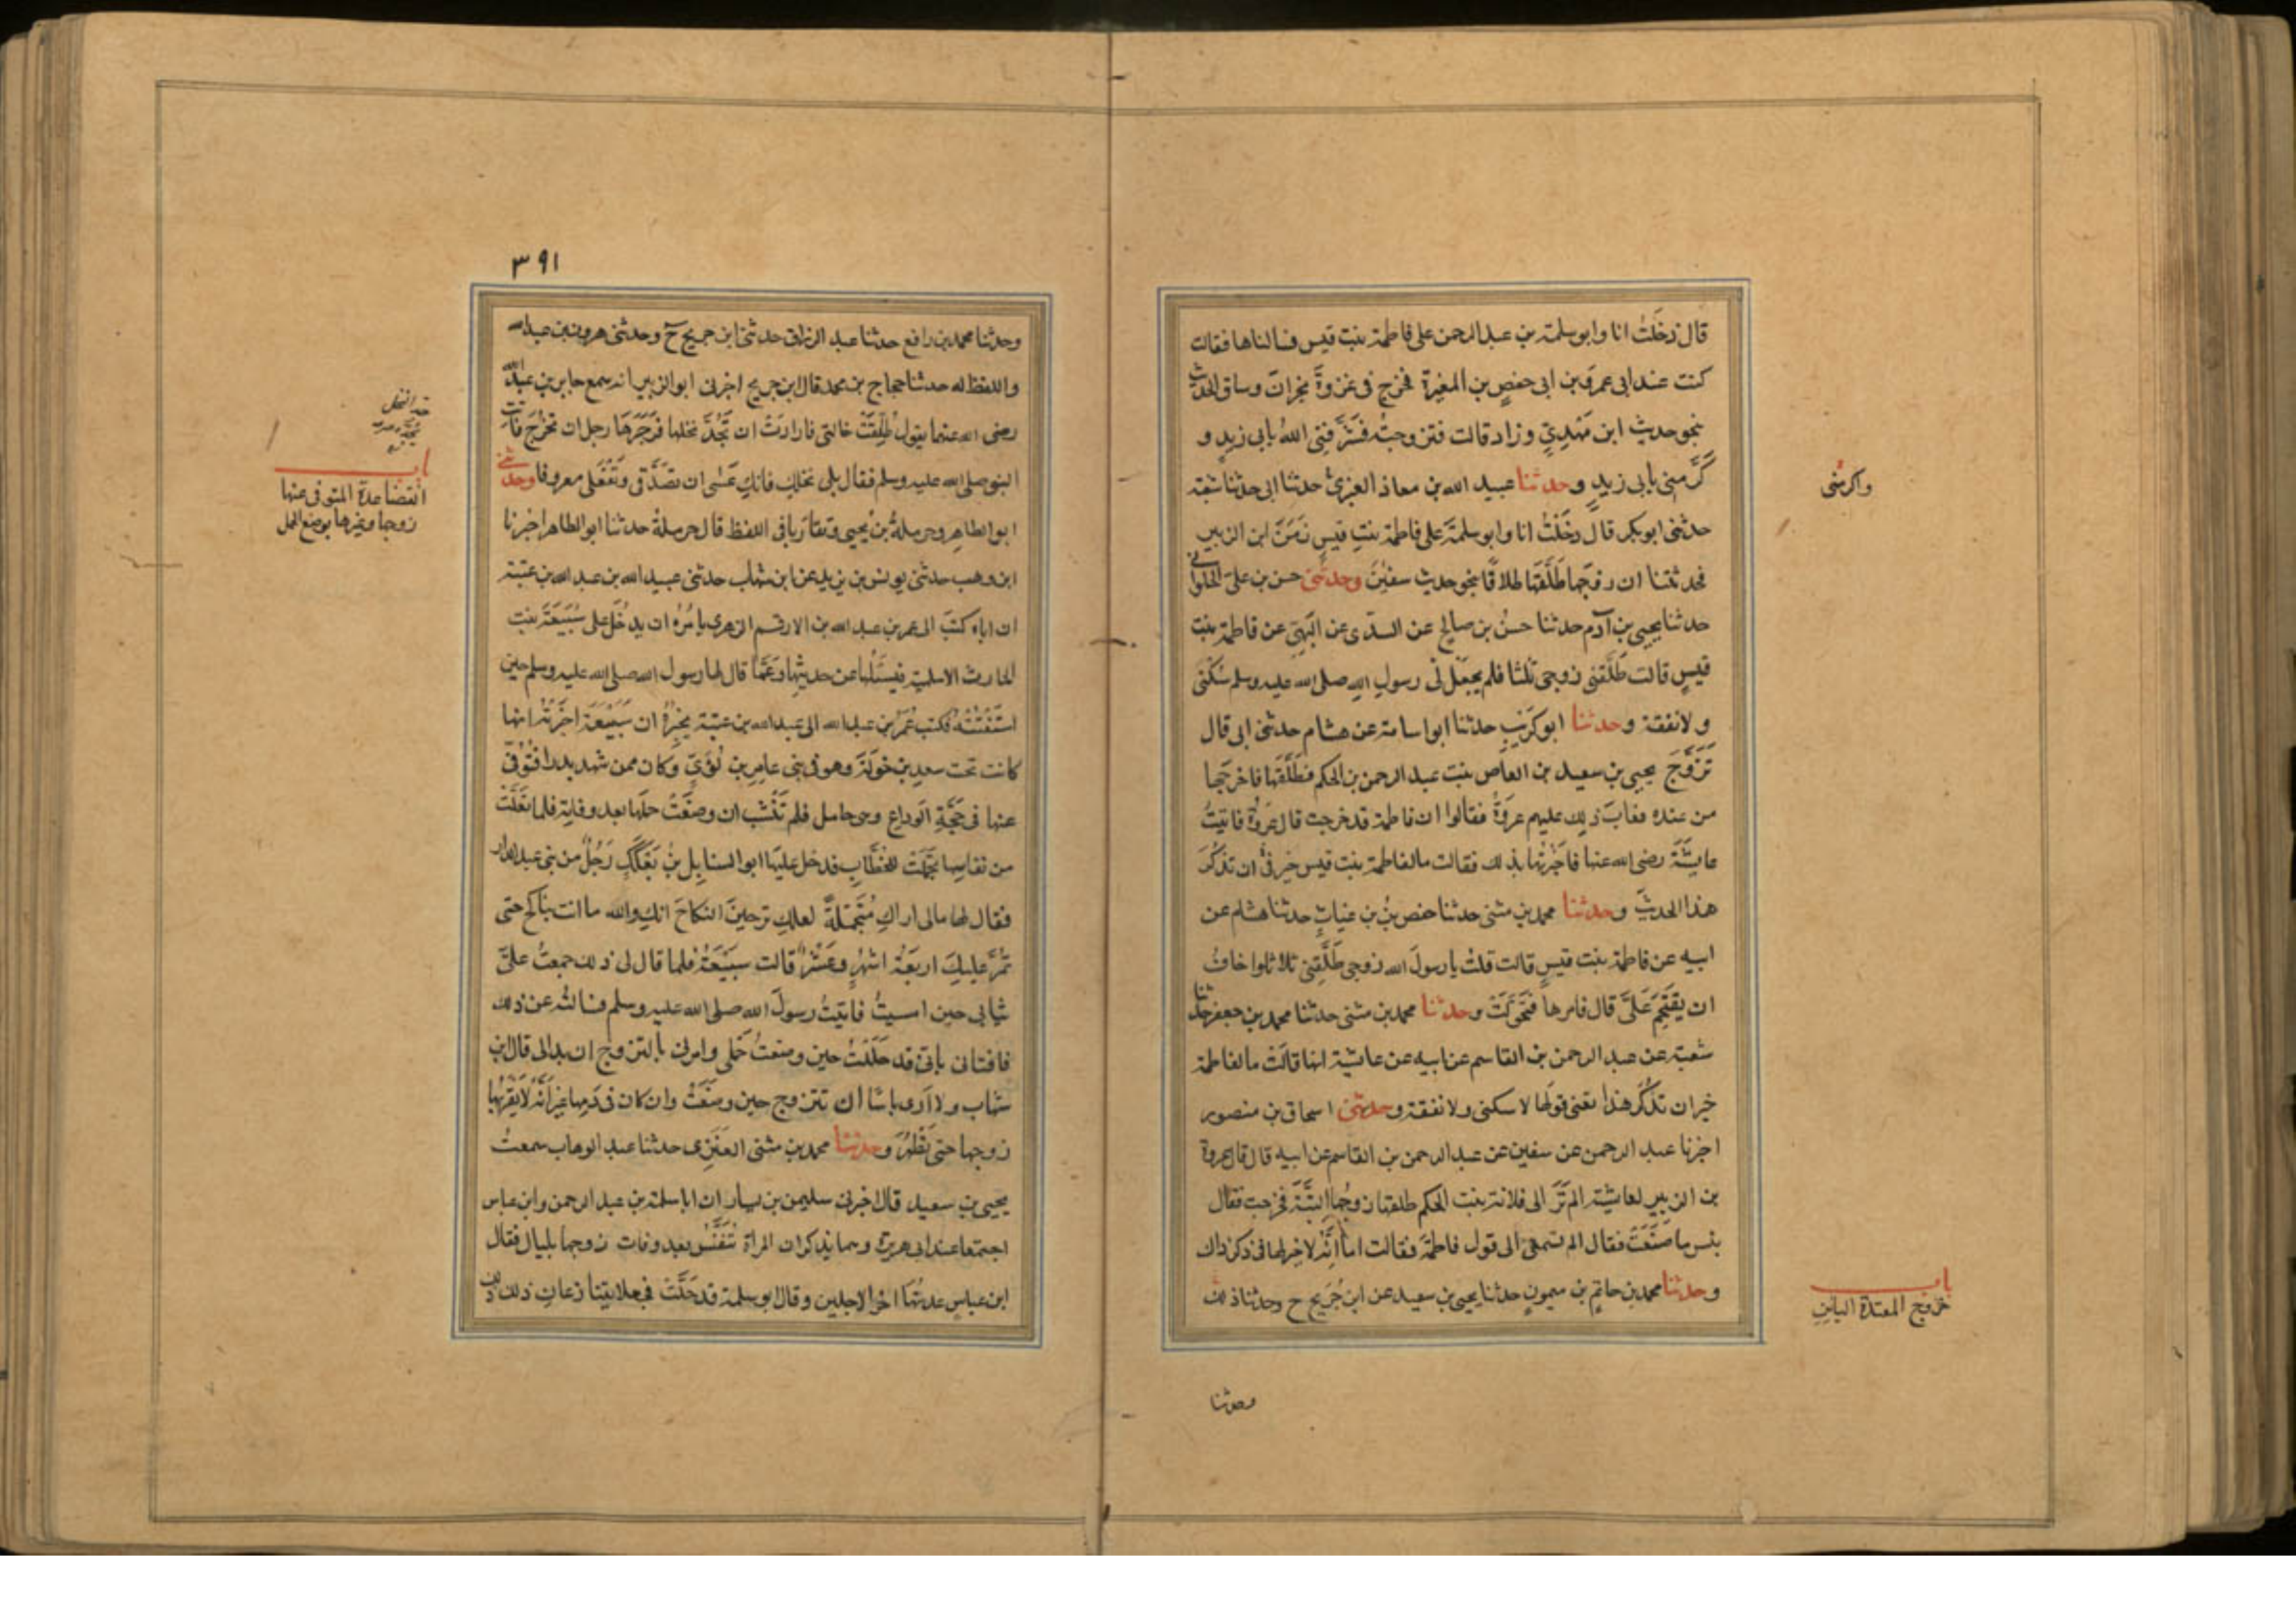 قال دخلت انا وابو سلمة بن عبد الرحمن على فاطمة بنت قيس فسالناها فقالت
كنت عند ابى عمرو بن ابى حفص بن المغيرة فخرج فى غزوة نجران وساق الحديث
بنحو حديث ابن مَهْدِيٍّ وزاد قالت فتزوجته فشرّفنى الله بابى زيد و
كرّمنى بابى زيد وحدثنا عبيد الله بن معاذ العنبرى حدثنا ابى حدثنا شعبة
حدثنى ابو بكر قال دخلت انا وابو سلمة على فاطمة بنت قيس زمن ابن الزبير
فحدثتنا ان زوجها طلّقها طلاقا بنحو حديث سفين وحدثنى حسن بن على الحلوانى
حدثنا يحيى بن آدم حدثنا حسن بن صالح عن السدى عن البهى عن فاطمة بنت
قيس قالت طلّقنى زوجى ثلثا فلم يجعل لى رسول الله صلى الله عليه وسلم سكنى
ولا نفقة وحدثنا ابو كريب حدثنا ابو اسامة عن هشام حدثنى ابى قال
تزوّج يحيى بن سعيد بن العاص بنت عبد الرحمن بن الحكم فطلّقها فاخرجها
من عنده فعاب ذلك عليهم عروة فقالوا ان فاطمة قد خرجت قال عروة فاتيت
عايشة رضى الله عنها فاخبرتها بذلك فقالت ما لفاطمة بنت قيس خير فى ان تذكر
هذا الحديث وحدثنا محمد بن مثنى حدثنا حفص بن غياث حدثنا هشام عن
ابيه عن فاطمة بنت قيس قالت قلت يا رسول الله زوجى طلّقنى ثلاثا واخاف
ان يقتحم علىّ قال فامرها فتحوّلت وحدثنا محمد بن مثنى حدثنا محمد بن جعفر حدثنا
شعبة عن عبد الرحمن بن القاسم عن ابيه عن عايشة انها قالت ما لفاطمة
خير ان تذكر هذا تعنى قولها لا سكنى ولا نفقة وحدثنى اسحاق بن منصور
اخبرنا عبد الرحمن عن سفين عن عبد الرحمن بن القاسم عن ابيه قال قال عروة
بن الزبير لعايشة الم ترَ الى فلانة بنت الحكم طلقها زوجها البتّة فخرجت فقال
بئس ما صنعت فقال الم تسمعى الى قول فاطمة فقالت اما انّه لا خير لها فى ذكر ذاك
وحدثنا محمد بن حاتم بن ميمون حدثنا يحيى بن سعيد عن ابن جُرَيج ح وحدثنا
واكرمنى
باب
خروج المعتدة الباين
وحدثنا
٣٩١
وحدثنا محمد بن رافع حدثنا عبد الرزاق حدثنا ابن جريج ح وحدثنى هرون بن عبد الله
واللفظ له حدثنا حجاج بن محمد قال ابن جريج اخبرنى ابو الزبير انه سمع جابر بن عبد الله
رضى الله عنهما يقول طُلِّقَتْ خالتى فارادت ان تَجُدَّ نخلها فزجرها رجل ان تخرج فاتت
النبى صلى الله عليه وسلم فقال بلى نخلك فانك عسى ان تصدّقى وتفعلى معروفا وحدثنى
ابو الطاهر وحرملة بن يحيى وتقاربا فى اللفظ قال حرملة حدثنا ابو الطاهر اخبرنا
ابن وهب حدثنى يونس بن يزيد عن ابن شهاب حدثنى عبيد الله بن عبد الله بن عتبة
ان اباه كتب الى عمر بن عبد الله بن الارقم الزهرى يامره ان يدخل على سُبَيْعَة بنت
الحارث الاسلمية فيسئلها عن حديثها وعمّا قال لها رسول الله صلى الله عليه وسلم حين
استفتته فكتب عمر بن عبد الله الى عبد الله بن عتبة يخبره ان سبيعة اخبرته انها
كانت تحت سعد بن خولة وهو فى بنى عامر بن لؤىّ وكان ممن شهد بدرا فتوفى
عنها فى حجّة الوداع وهى حامل فلم تنشب ان وضعت حملها بعد وفاته فلما تعلّت
من نفاسها تجمّلت للخطّاب فدخل عليها ابو السنابل بن بعكك رجل من بنى عبد الدار
فقال لها مالى اراك متجمّلة لعلك ترجين النكاح انك والله ما انت بناكح حتى
تمرّ عليك اربعة اشهر وعشر قالت سبيعة فلما قال لى ذلك جمعت علىّ
ثيابى حين امسيت فاتيت رسول الله صلى الله عليه وسلم فسالته عن ذلك
فافتانى بانّى قد حللت حين وضعت حملى وامرنى بالتزوج ان بدا لى قال ابن
شهاب ولا ارى باسًا ان تتزوج حين وضعت وان كان فى دمها غير انّه لا يقربها
زوجها حتى تطهر وحدثنا محمد بن مثنى العنزى حدثنا عبد الوهاب سمعت
يحيى بن سعيد قال اخبرنى سليمن بن يسار ان ابا سلمة بن عبد الرحمن وابن عباس
اجتمعا عند ابى هريرة وهما يذكران المراة تنفس بعد وفات زوجها بليال فقال
ابن عباس عدتها اخر الاجلين وقال ابو سلمة قد حلّت فجعلا يتنازعان ذلك
باب
انقضا عدة المتوفى عنها
زوجها وغيرها بوضع الحمل